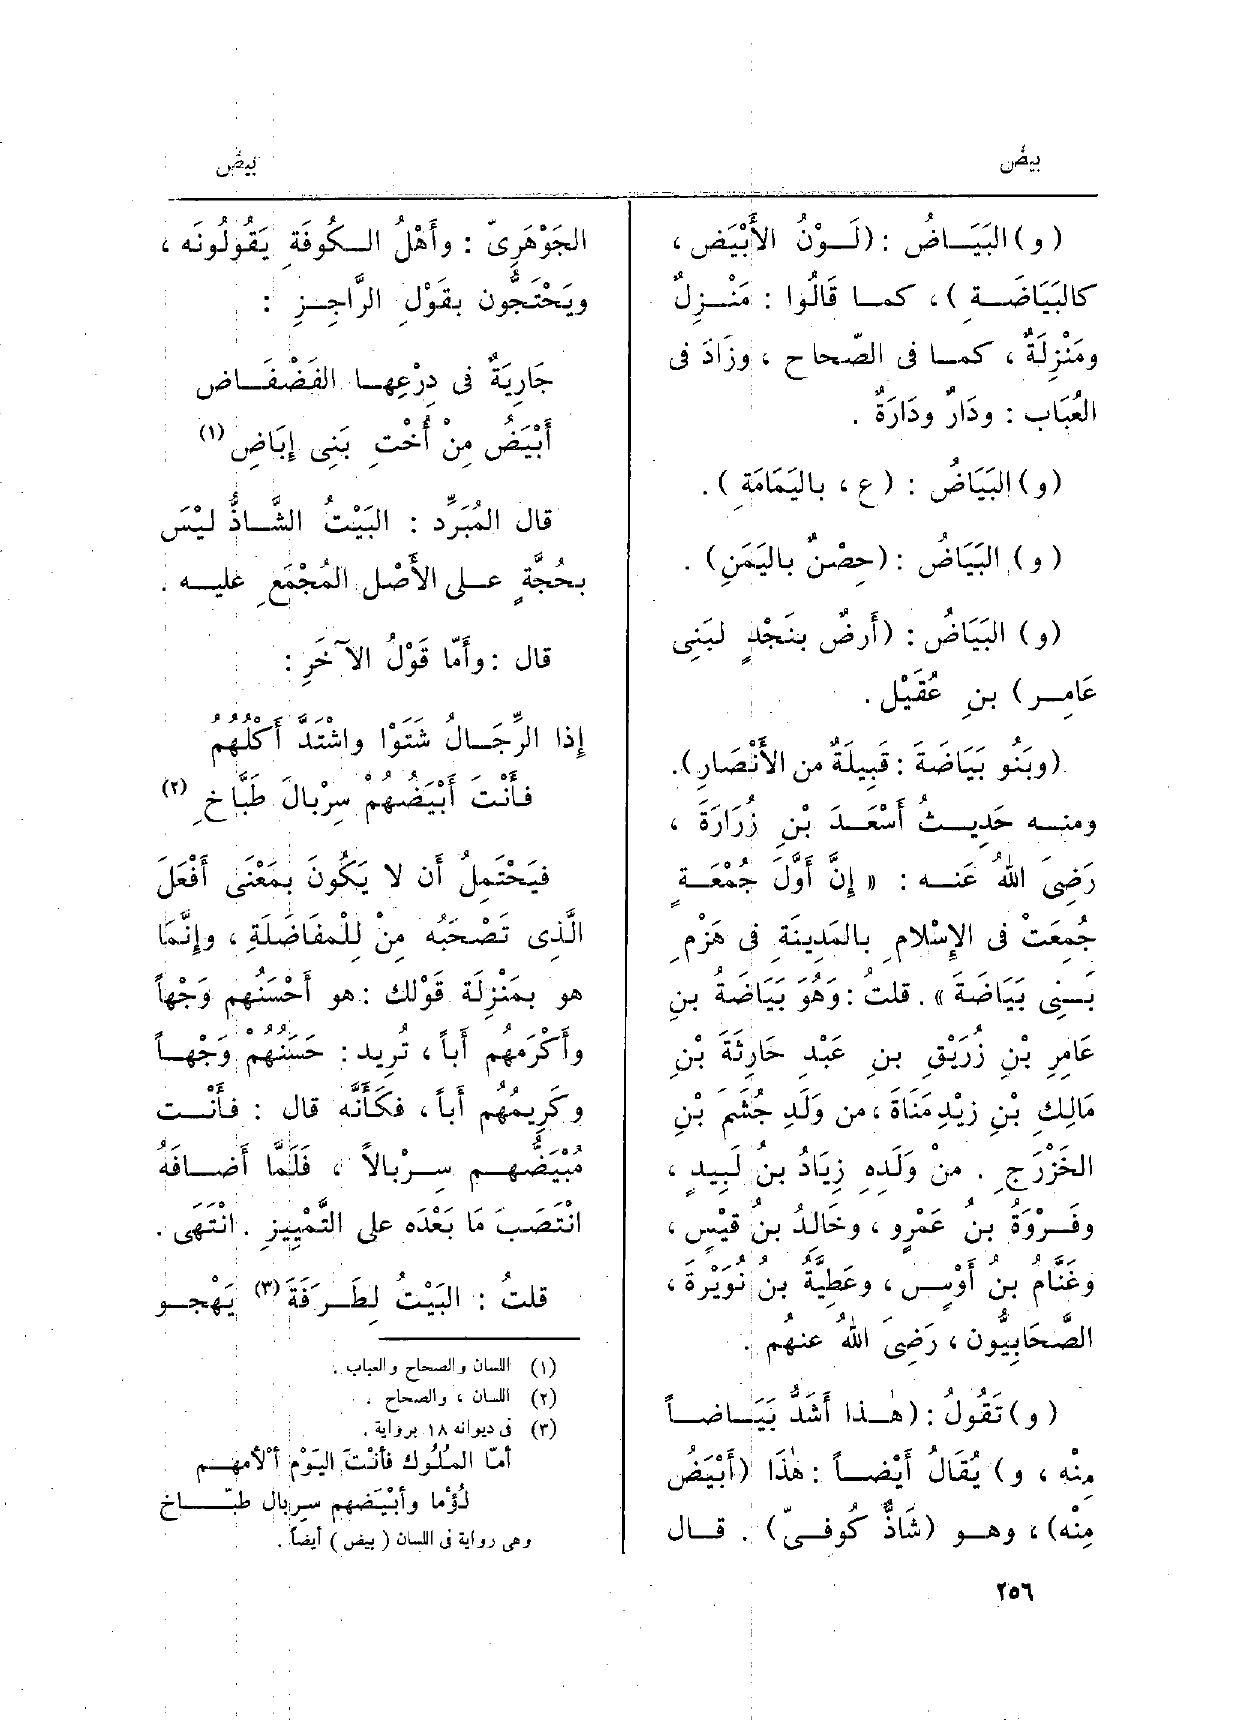 بيض
بيض
(و) البَيَـاضُ : (لَـوْنُ الأَبْيَضِ ،
كالبَيَاضَـةِ) ، كمـا قَالُوا : مَنْـزِلٌ
ومَنْزِلَةٌ ، كمـا فى الصّحاح ، وزَادَ فى
العُبَاب : ودَارٌ ودَارَةٌ .
(و) البَيَاضُ : (ع ، باليَمَامَةِ) .
(و) البَيَاضُ : (حِصْنٌ باليَمَنِ) .
(و) البَيَاضُ : (أَرضٌ بنَجْدٍ لبَنِى
عَامِـر) بنِ عُقَيْل .
(وبَنُو بَيَاضَةَ : قَبِيلَةٌ من الأَنْصَارِ) .
ومنـه حَدِيـثُ أَسْعَـدَ بْنِ زُرَارَةَ ،
رَضِىَ اللهُ عَنـه : « إِنَّ أَوَّلَ جُمْعَـةٍ
جُمِعَتْ فى الإِسْلامِ بالمَدِينَةِ فى هَزْمِ
بَـنِى بَيَاضَةَ » . قلتُ : وَهُوَ بَيَاضَةُ بن
عَامِرِ بْنِ زُرَيْقِ بنِ عَبْدِ حَارِثَةَ بْنِ
مَالِكِ بْنِ زيْدِ مَنَاةَ ، من وَلَدِ جُشَمَ بْنِ
الخَزْرَجِ . منْ وَلَدِهِ زِيَادُ بنُ لَبِيدٍ ،
وفَـرْوَةُ بنُ عَمْرٍو ، وخَالدُ بنُ قَيْسٍ ،
وغَنَّامُ بنُ أَوْسٍ ، وعَطِيَّةُ بنُ نُوَيْرَةَ ،
الصَّحَابِيُّون ، رَضِىَ اللهُ عنهم .
(و) تَقُولُ : (هٰـذا أَشَدُّ بَيَـاضـاً
مِنْه ، و) يُقَالُ أَيْضـاً : هٰذَا (أَبْيَضُ
مِنْه) ، وهـو (شَاذٌّ كُوفـىّ) . قـال
الجَوْهَرِىّ : وأَهْلُ الـكُوفَةِ يَقُولُونَه ،
ويَحْتَجُّون بقَوْلِ الرَّاجِـزِ :
جَارِيَةٌ فى دِرْعِهـا الفَضْفَـاضِ
أَبْيَضُ مِنْ أُخْتِ بَنِى إِبَاضِ (١)
قال المُبَرّد : البَيْتُ الشَّـاذُّ ليْسَ
بحُجَّةٍ عـلى الأَصْلِ المُجْمَعِ عليـه .
قال : وأَمّا قَوْلُ الآخَرِ :
إِذا الرِّجَـالُ شَتَوْا واشْتَدَّ أَكْلُهُم
فأَنْتَ أَبْيَضُهُمْ سِرْبالَ طَبَّاخِ (٢)
فيَحْتَمِلُ أَن لا يَكُونَ بمَعْنَى أَفْعَلَ
الَّذِى تَصْحَبُه مِنْ لِلْمفَاضَلَةِ ، وإِنَّمَا
هو بمَنْزِلَة قَوْلك : هو أَحْسَنُهم وَجْهاً
وأَكْرَمُهم أَباً ، تريد : حَسَنُهُمْ وَجْهـاً
وكَرِيمُهم أَباً ، فكَأَنَّه قال : فأَنْـت
مُبْيَضُّهـم سِـرْبالاً ، فَلَمَّا أَضـافَهُ
انْتَصَبَ مَا بَعْدَه على التَّمْيِيزِ . انْتَهى .
قلتُ : البَيْتُ لطَـرَفَةَ (٣) يَهْجـو
(١) اللسان والصحاح والعباب .
(٢) اللسان ، والصحاح .
(٣) فى ديوانه ١٨ برواية .
أمّا المُلُوك فأَنْتَ اليَوْمَ أَلأَمهـم
لُؤْما وأَبْيَضهم سربال طبّـاخ
وهى رواية فى اللسان (بيض) أيضاً .
٢٥٦